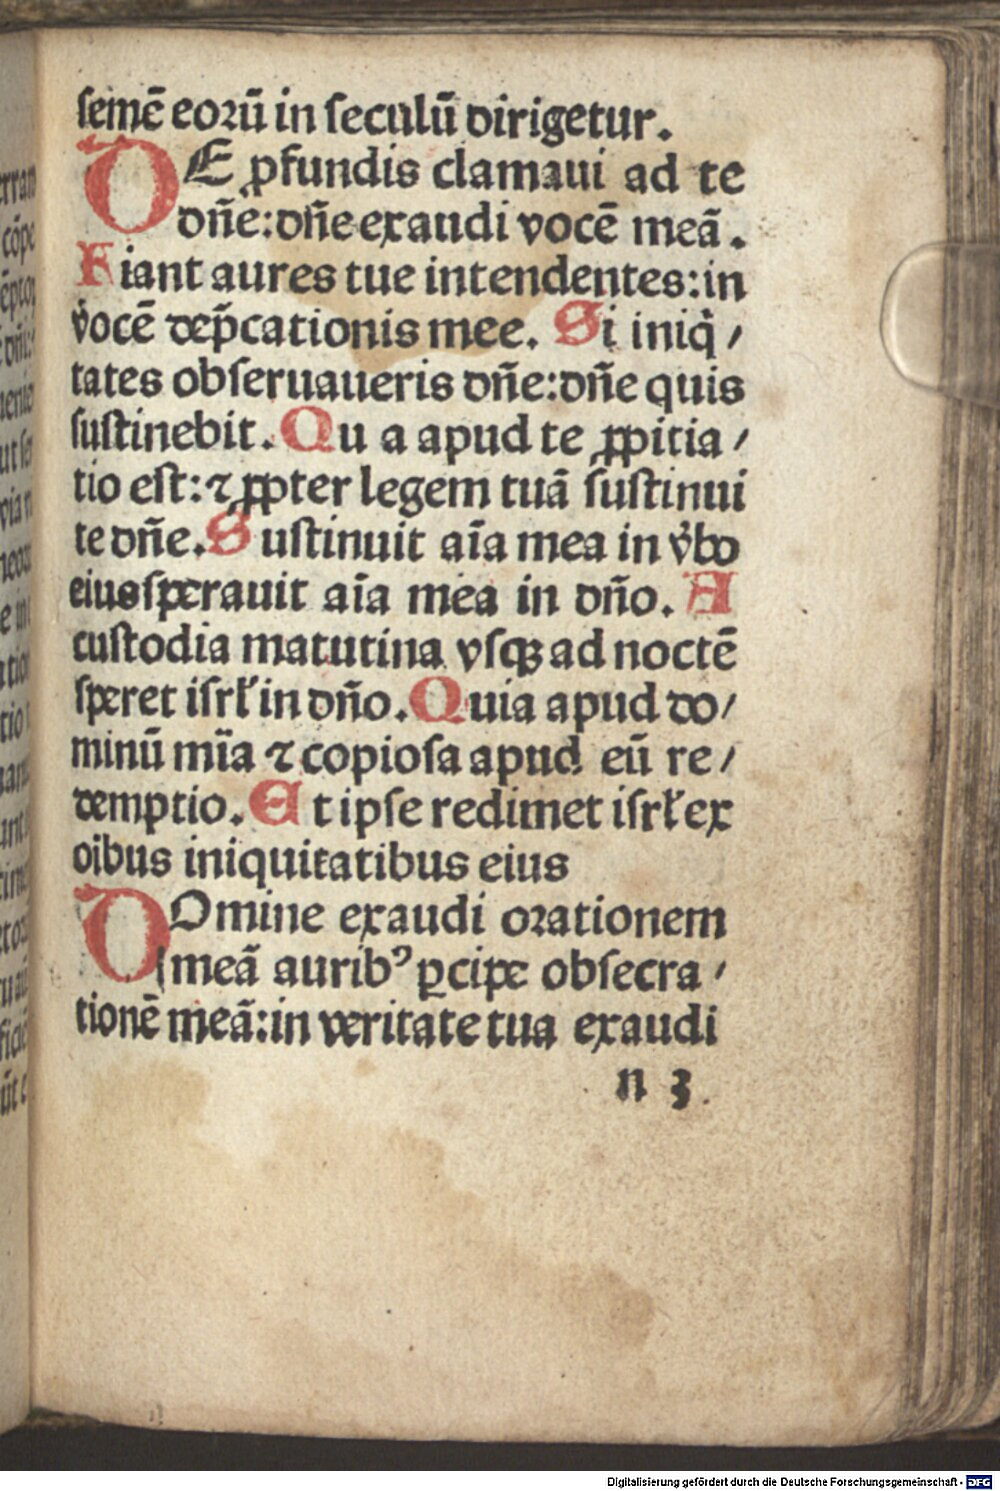 semē eorū in seculū dirigetur.
DE ꝓfundis clamaui ad te
dñe: dñe exaudi vocē meā.
Fiant aures tue intendentes: in
vocē dep̄cationis mee. Si iniq̇ /
tates obseruaueris dñe: dñe quis
sustinebit. Qu a apud te ꝓpitia /
tio est: ⁊ ꝓpter legem tuā sustinui
te dñe. Sustinuit aīa mea in v̇bo
eius sperauit aīa mea in dño. A
custodia matutina vsqꝫ ad noctē
speret isrl̄ in dño. Quia apud do /
minū mīa ⁊ copiosa apud eū re /
demptio. Et ipse redimet isrl̄ ex
oībus iniquitatibus eius
DOmine exaudi orationem
meā auribꝰ ꝑcipe obsecra /
tionē meā: in veritate tua exaudi
n 3
Digitalisierung gefördert durch die Deutsche Forschungsgemeinschaft - DFG